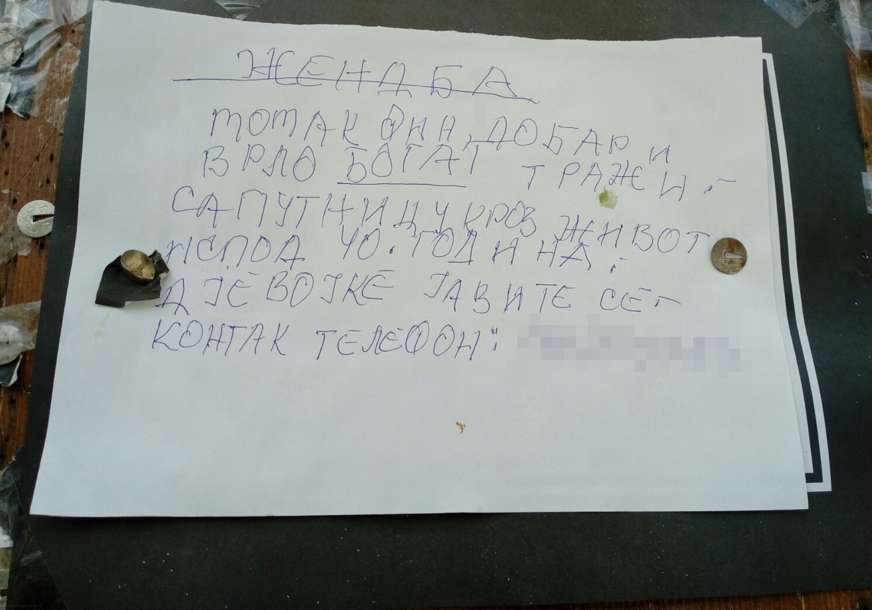 ЖЕНДБА
МОМАК ФИН, ДОБАР И
ВРЛО БОГАТ ТРАЖИ.-
САПУТНИЦУ КРОЗ ЖИВОТ
ИСПОД 40. ГОДИНА.-
ДЈЕВОЈКЕ ЈАВИТЕ СЕ.-
КОНТАК ТЕЛЕФОН: